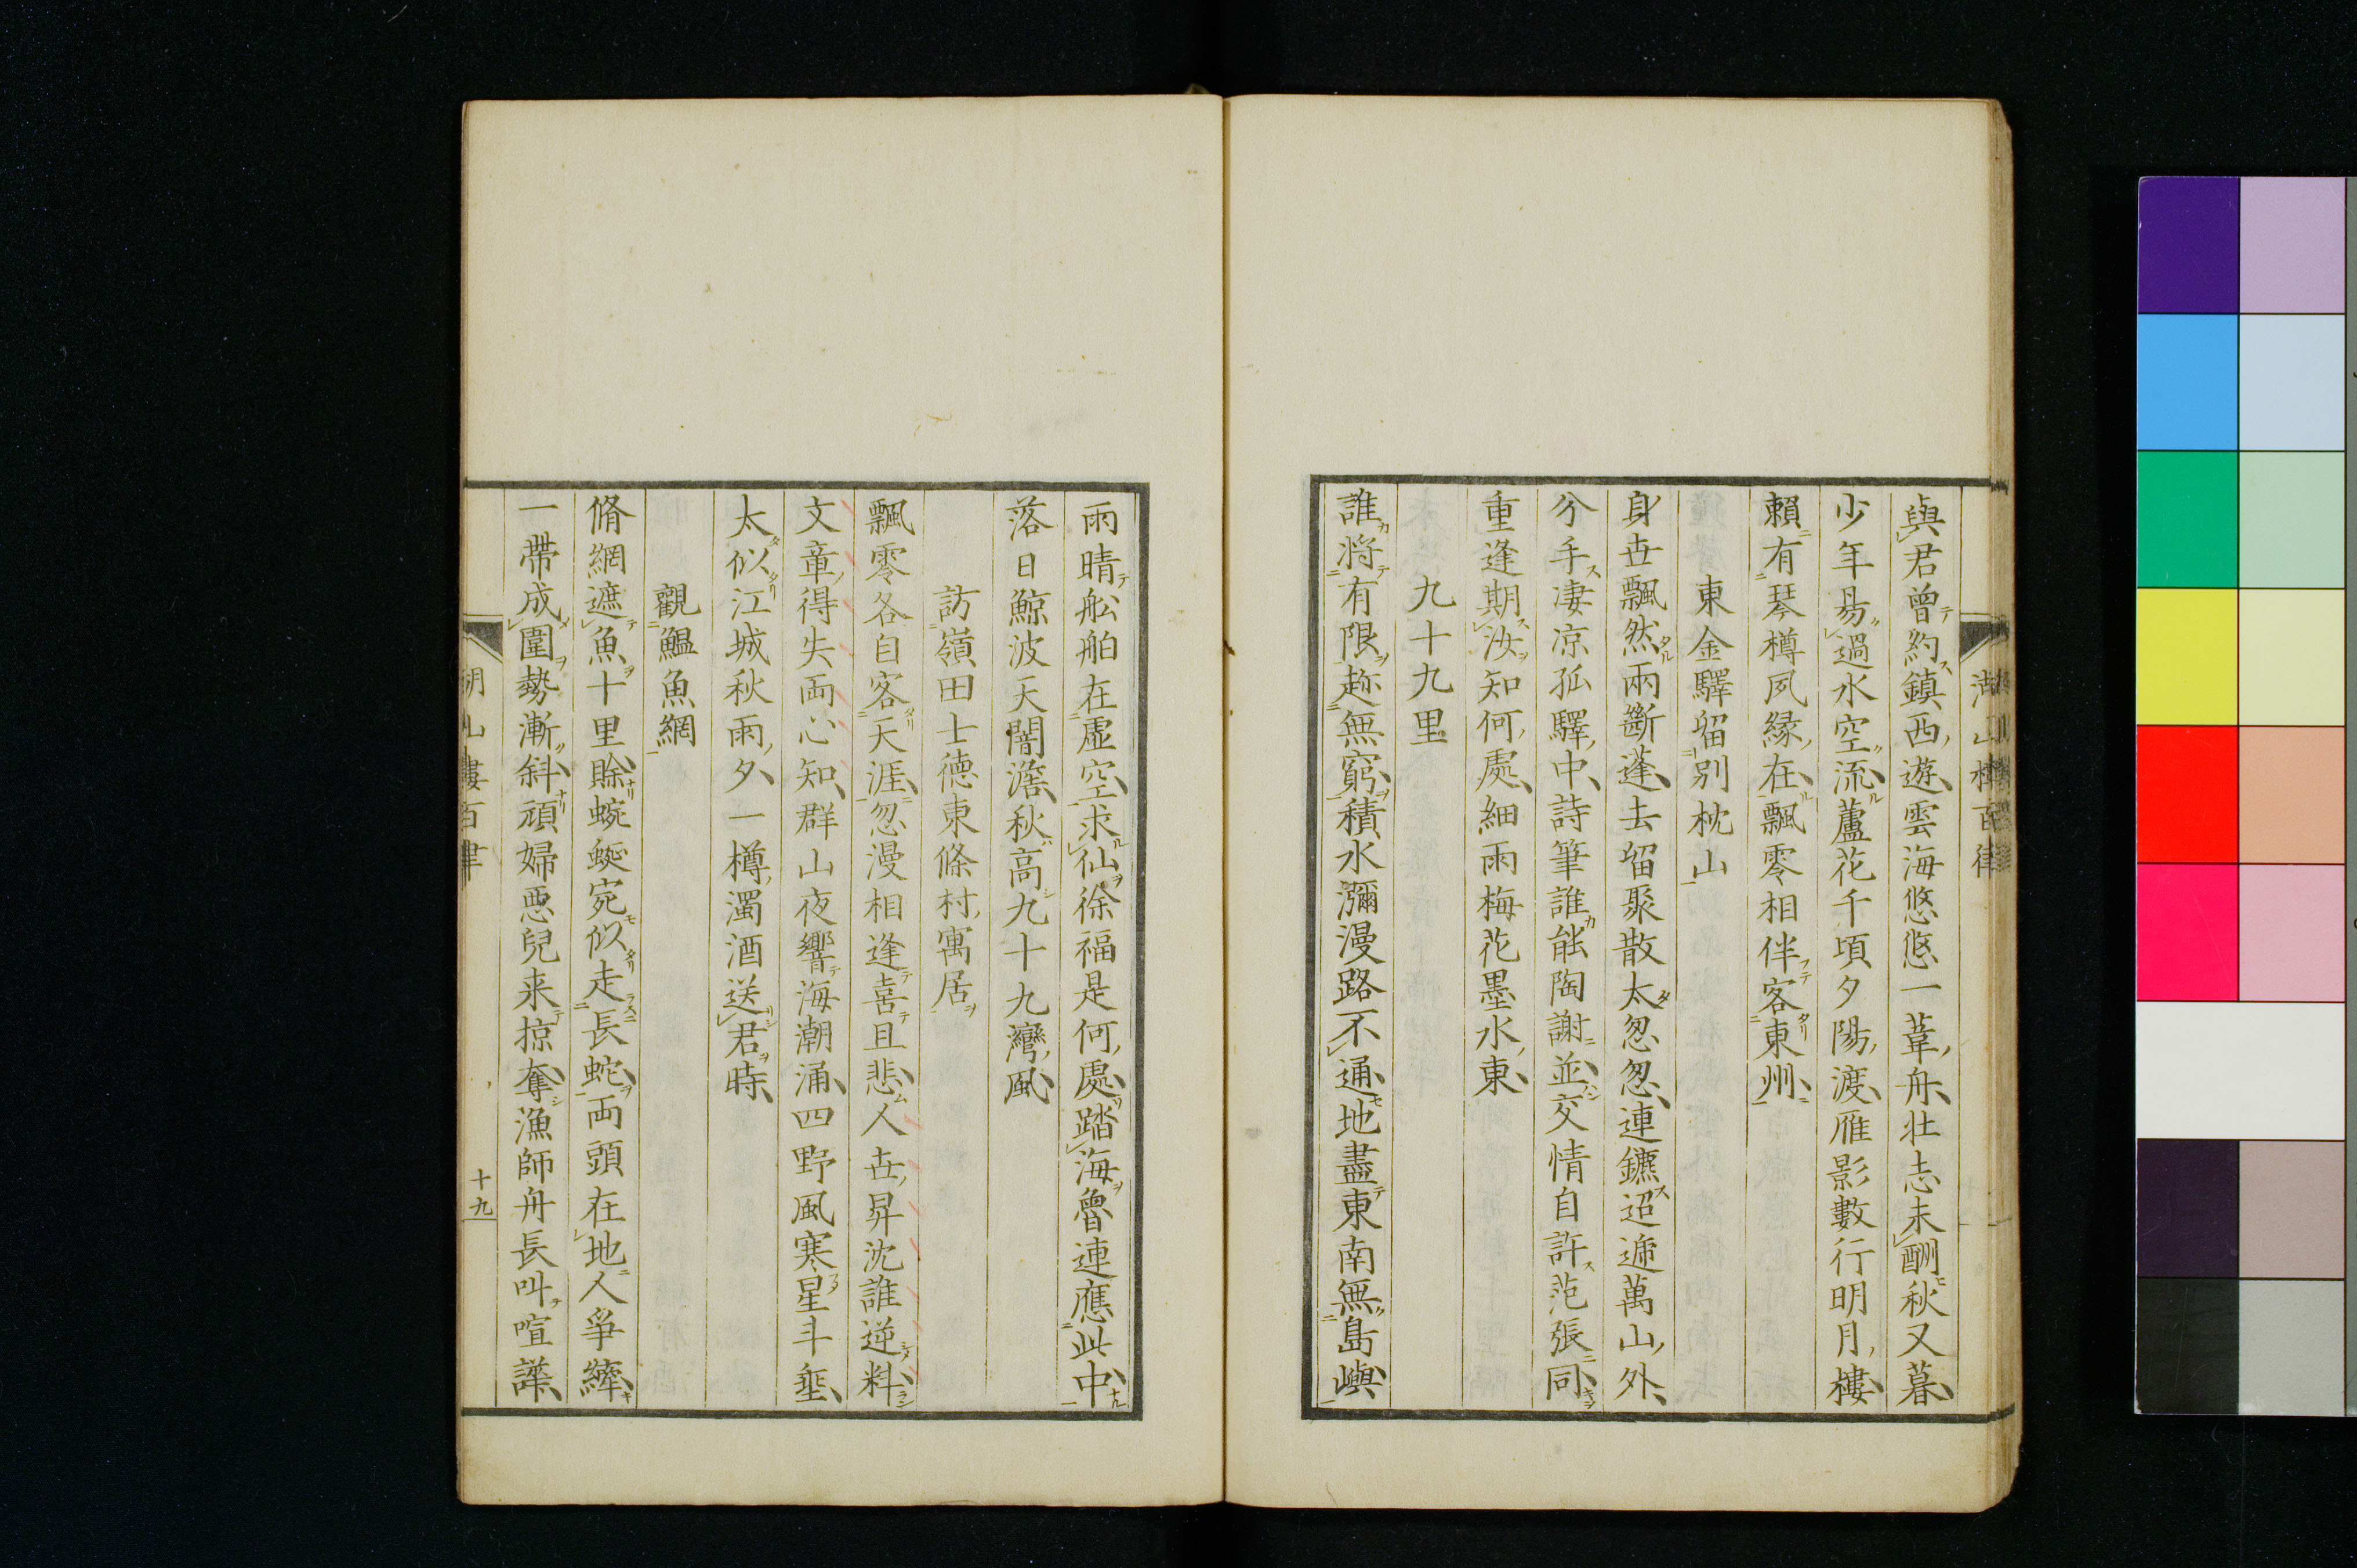 與君曾約鎮西遊雲海悠悠一葦舟壮志未酬秋又暮
少年易過水空流蘆花千頃夕陽渡雁影數行明月樓
賴有琴樽夙縁在飄零相伴客東州
東金驛留別枕山
身世飄然兩斷蓬去留聚散太怱怱連鑣迢遞萬山外
分手凄凉孤驛中詩筆誰能陶謝並交情自許范張同
重逢期汝知何處細雨梅花墨水東
九十九里
誰將有限趂無窮積水瀰漫路不通地盡東南無島嶼
雨晴舩舶在虛空求仙徐福是何處踏海魯連應此中
落日鯨波天闇澹秋高九十九灣風
訪嶺田士德東條村寓居
飄零各自客天涯忽漫相逢喜且悲人世昇沈誰逆料
文章得失両心知群山夜響海潮涌四野風寒星斗垂
太似江城秋雨夕一樽濁酒送君時
觀鰮魚網
脩網遮魚十里賒蜿蜒宛似走長蛇両頭在地人爭縴
一帶成圍勢漸斜頑婦悪兒来掠奪漁師舟長叫喧譁
湖山樓百律
十九